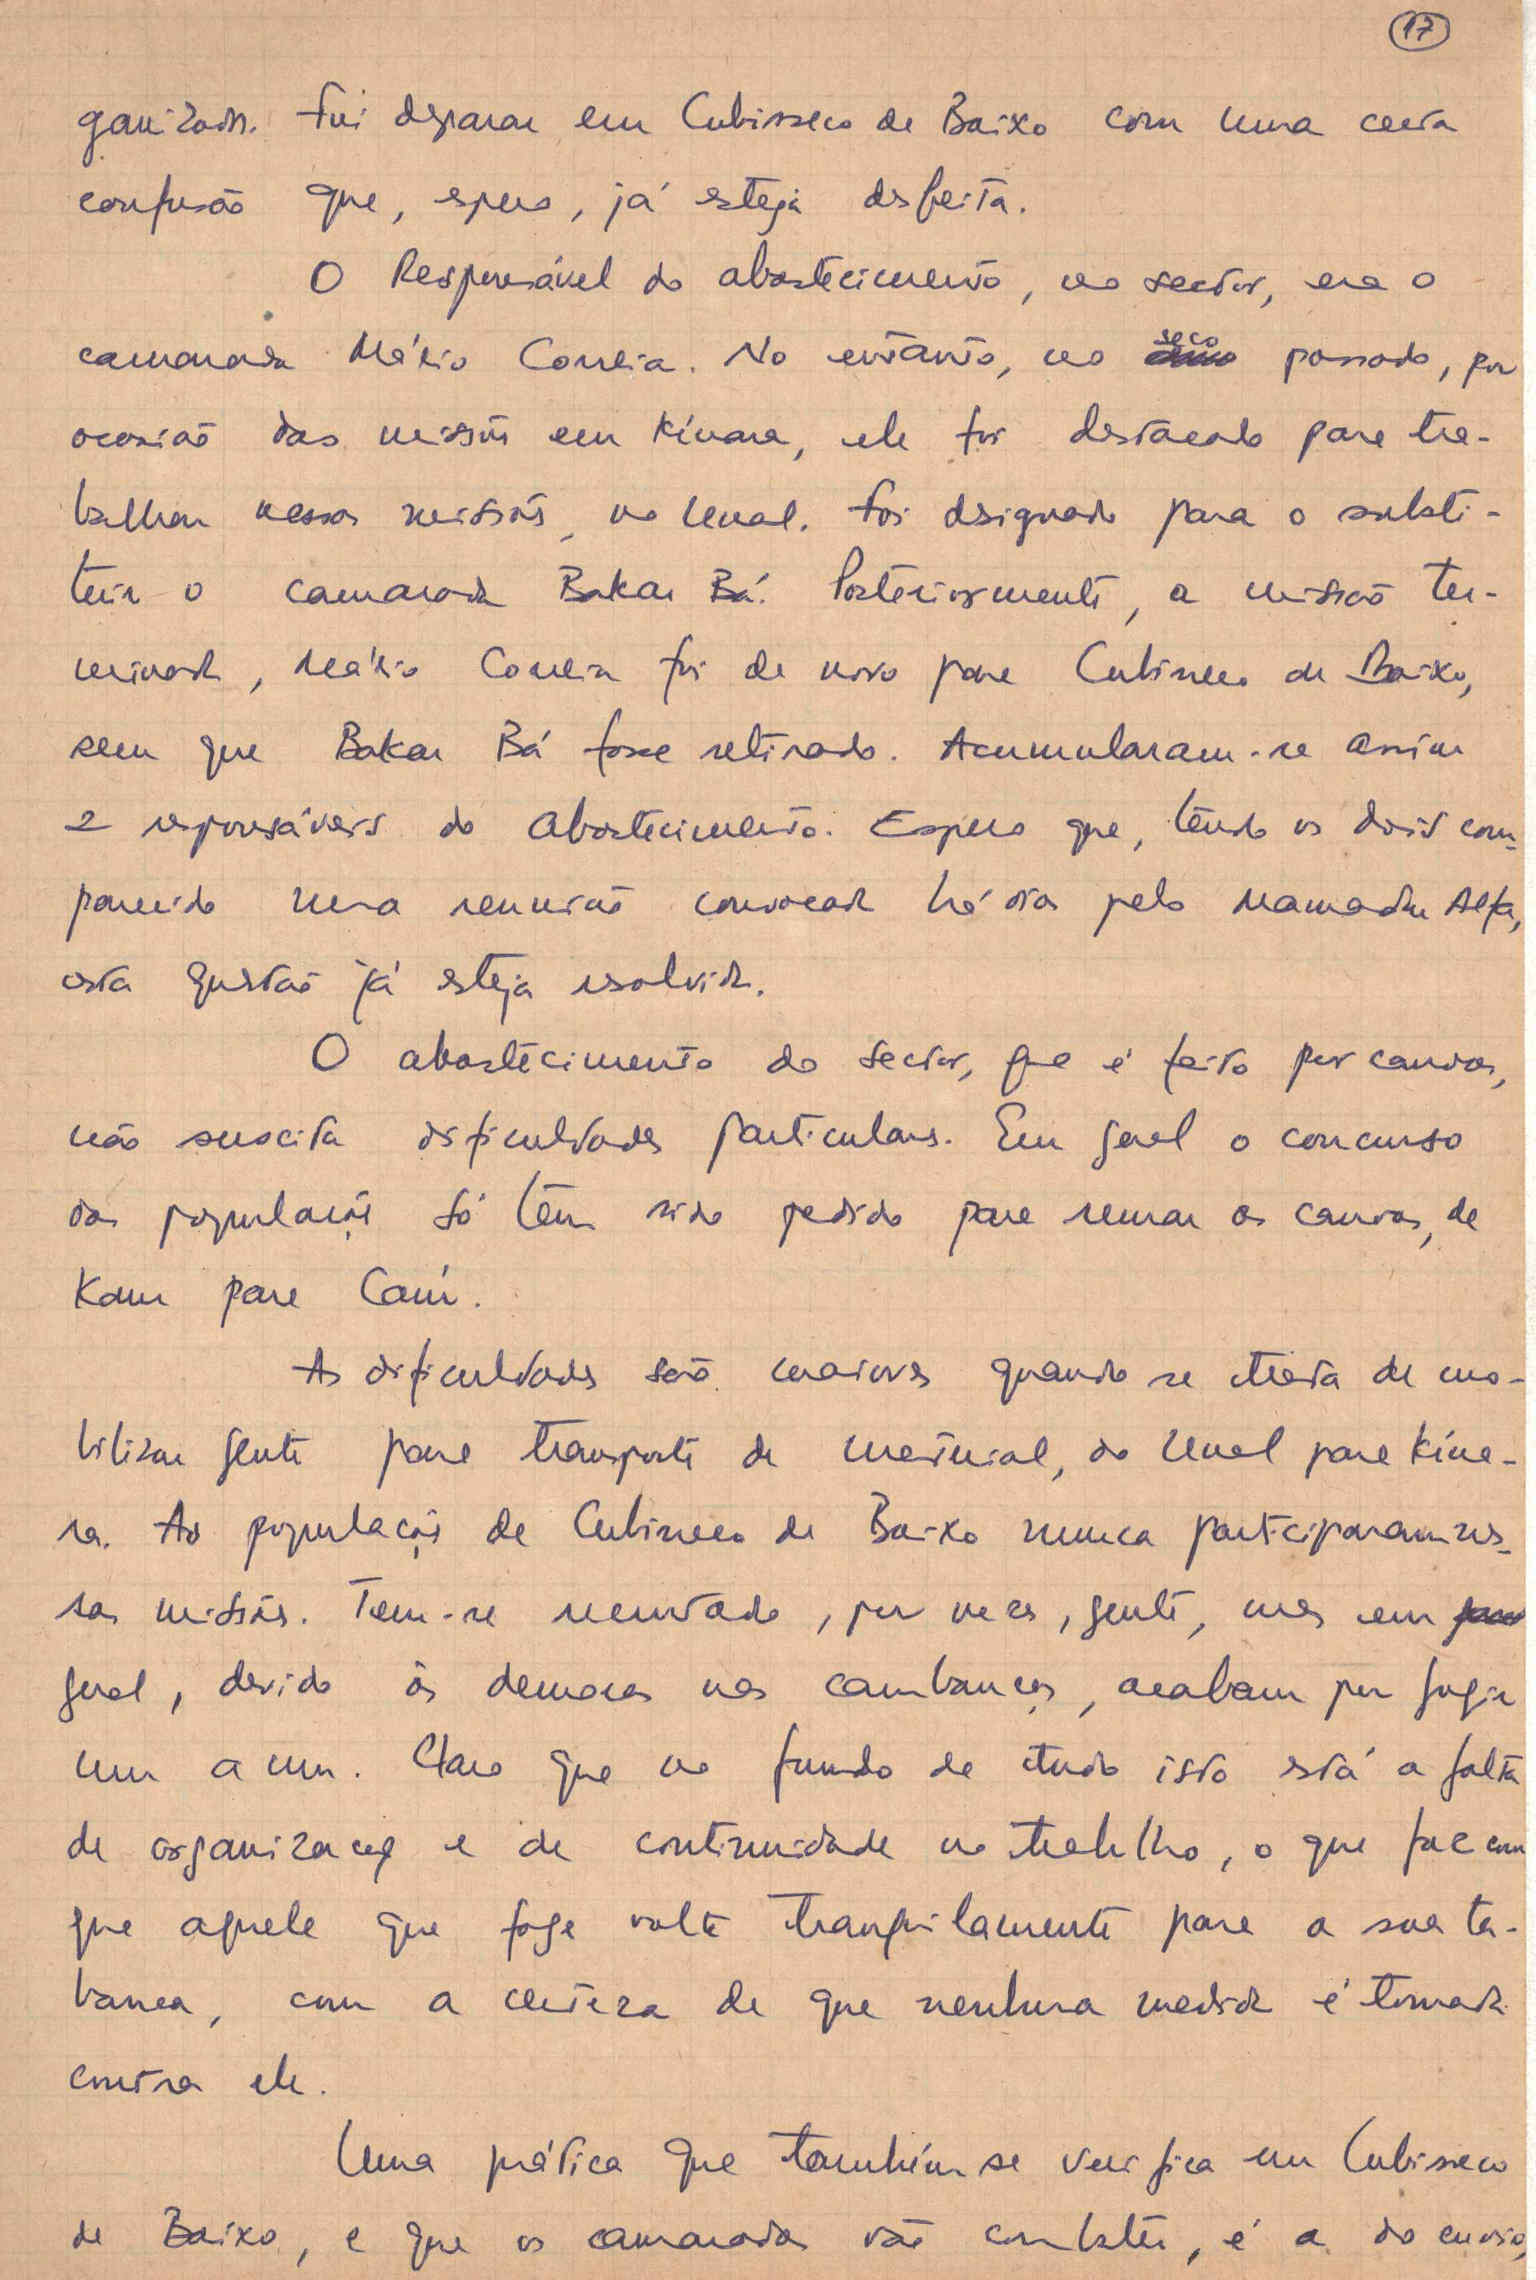 17
ganizada. Fui deparar em Cubisseco de Baixo com uma certa
confusão que, espero, já esteja desfeita.
O Responsável do abastecimento, no sector, era o
camarada Mário Correia. No entanto, no seco passado, por
ocasião das missões em Kínara, ele foi destacado para tra-
balhar nessas missões, no Unal. Foi designado para o substi-
tuir o camarada Bakar Bá. Posteriormente, a missão ter-
minada, Mário Correia foi de novo para Cubisseco de Baixo,
sem que Bakar Bá fosse retirado. Acumularam-se assim
2 responsáveis do abastecimento. Espero que, tendo os dois com-
parecido numa reunião convocada há dias pelo Mamadu Alfa,
esta questão já esteja resolvida.
O abastecimento do sector, que é feito por canoas,
não suscita dificuldades particulares. Em geral o concurso
das populações só tem sido pedido para remar as canoas, de
Kam para Caur.
As dificuldades são maiores quando se trata de mo-
bilizar gente para transporte de material, do Unal para Kína-
ra. As populações de Cubisseco de Baixo nunca participaram nes-
sas missões. Tem-se recrutado, por vezes, gente, mas em
geral, devido às demoras nas cambanças, acabam por fugir
um a um. Claro que no fundo de tudo isto está a falta
de organização e de continuidade no trabalho, o que faz com
que aquele que foge volte tranquilamente para a sua ta-
banca, com a certeza de que nenhuma medida é tomada
contra ele.
Uma prática que também se verifica em Cubisseco
de Baixo, e que os camaradas vão combater, é a do envio,